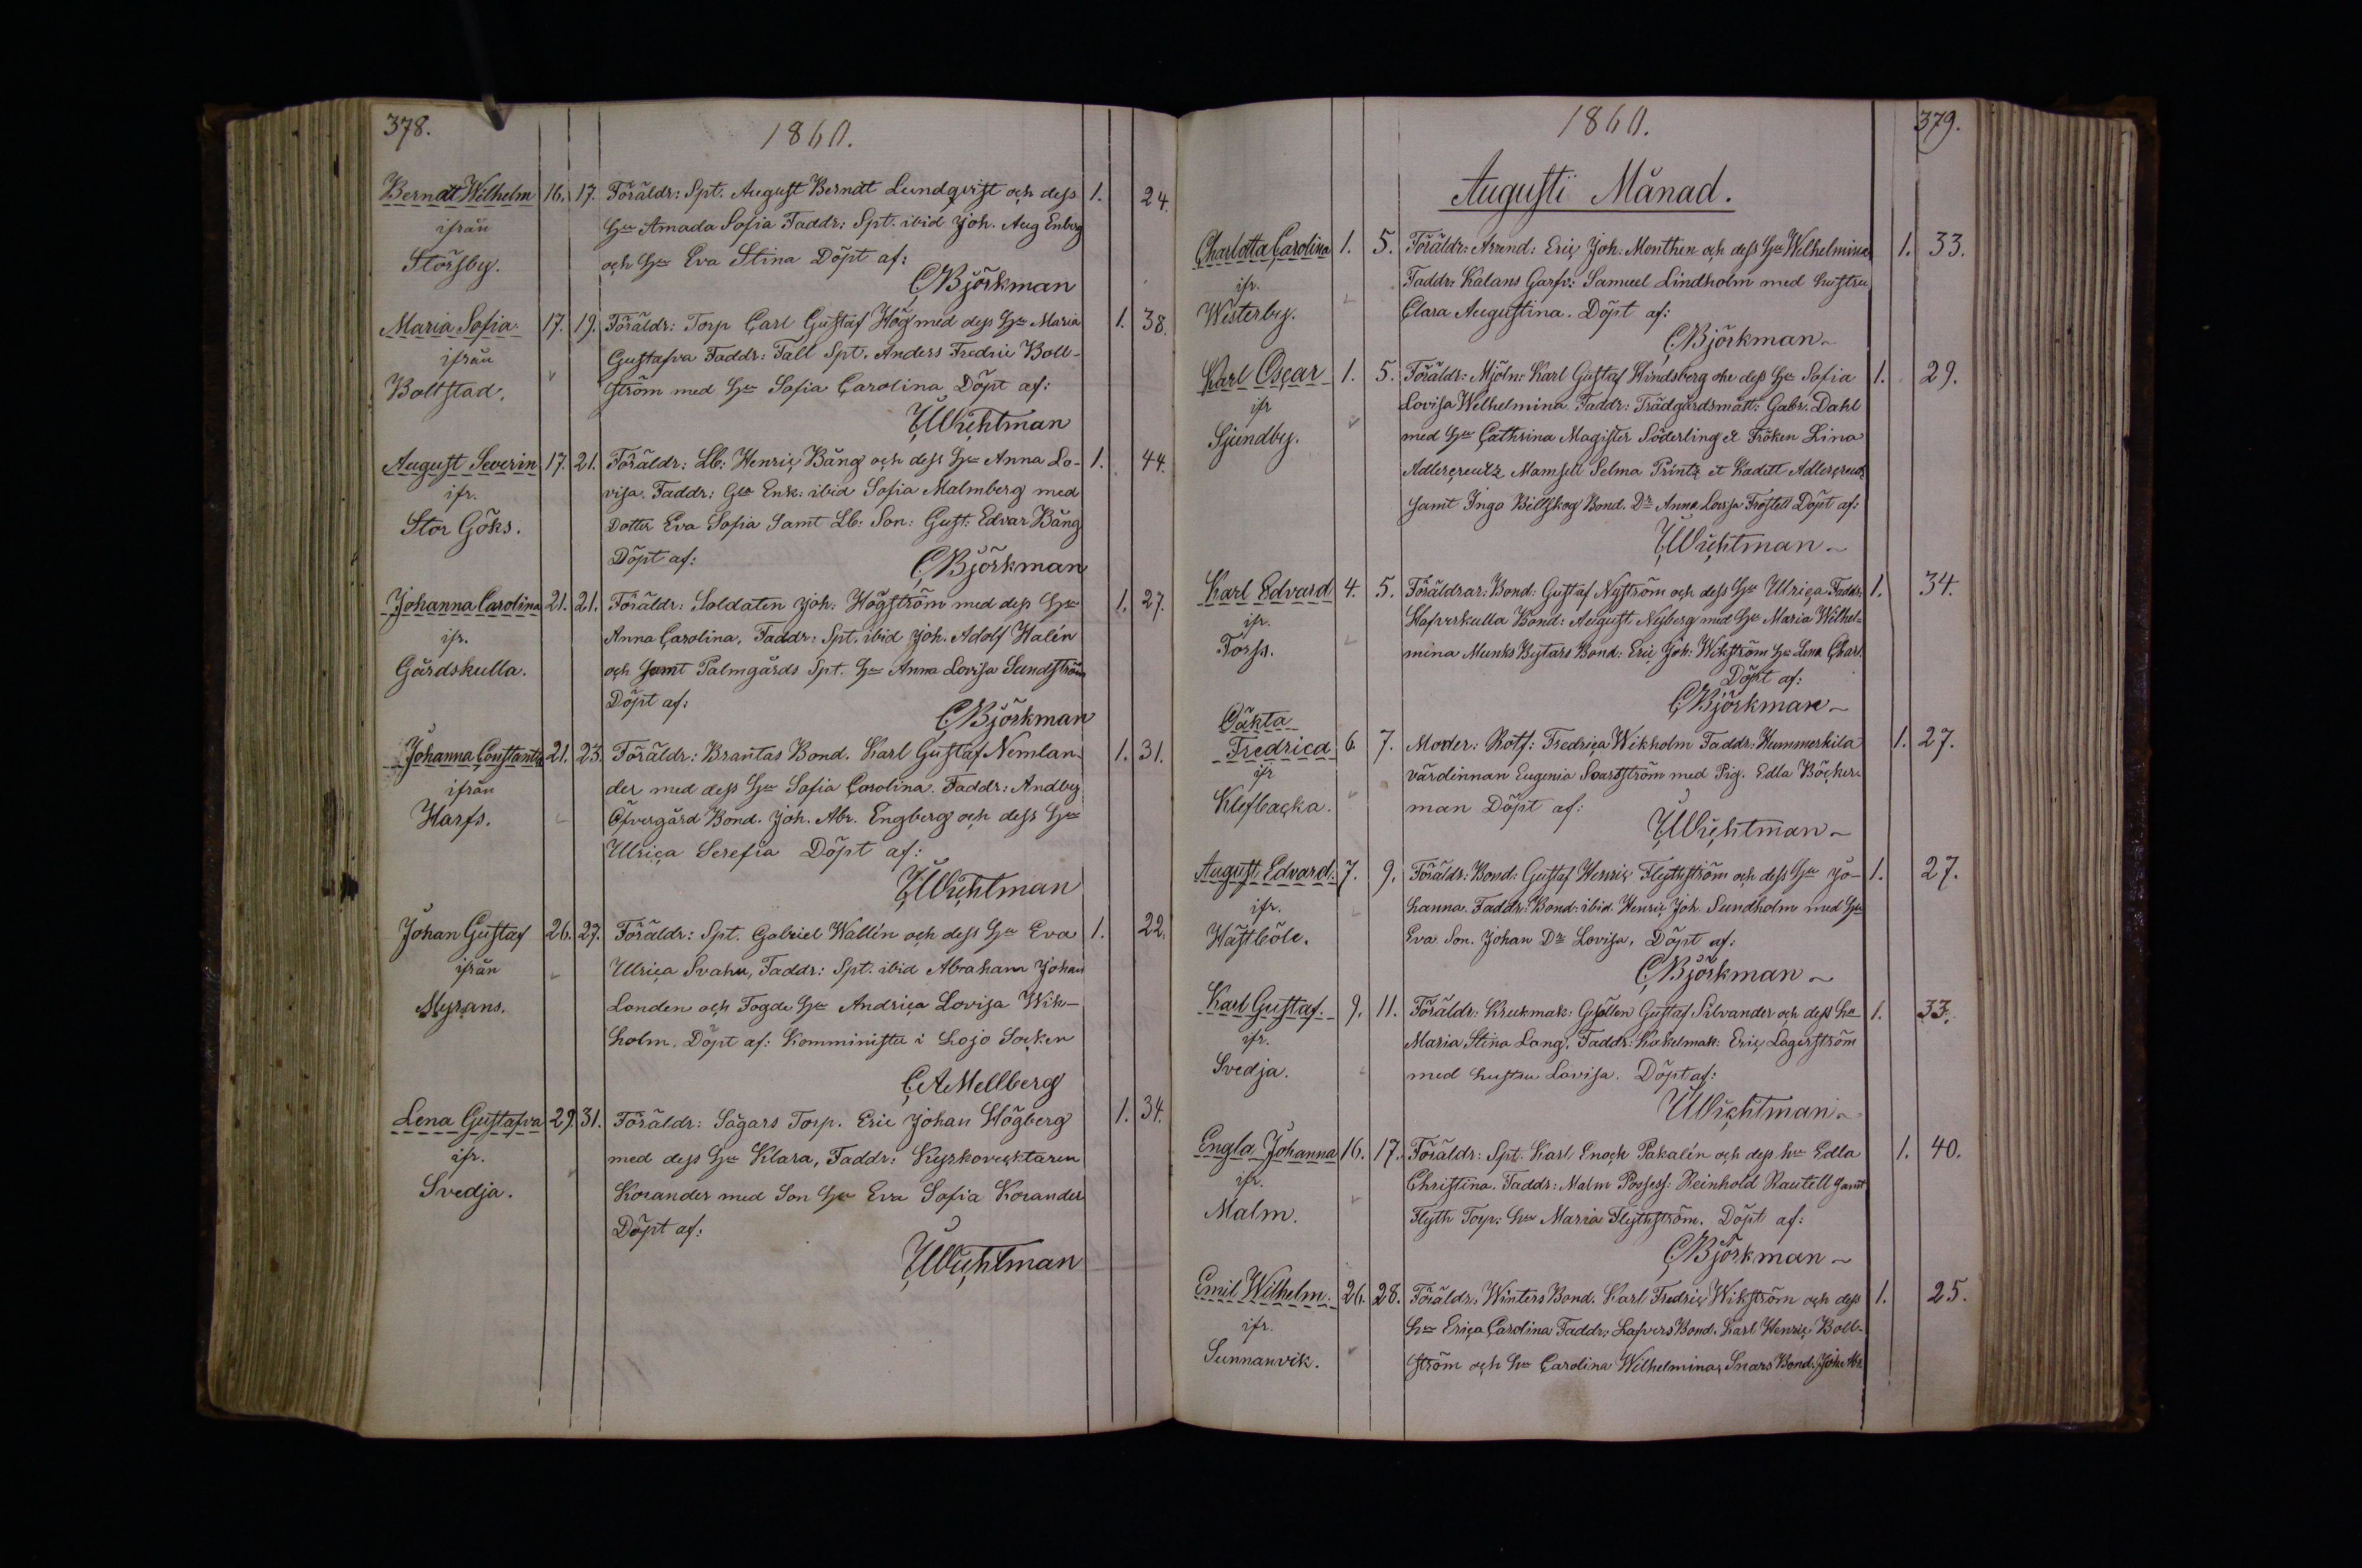 378.
1860.
Berndt Wilhelm 16. 17. Föräldr: Spt. August Berndt Lundqvist och dess 1. 24.
ifrån Hu Amada Sofia Faddr: Spt. ibid Joh. Aug Enberg
Störsby. och Hu Eva Stina Döpt af:
CBjörkman
Maria Sofia 17. 19. Föräldr: Torp Carl Gustaf Hög med dess Hu Maria 1. 38.
ifrån Gustafva Faddr: Fäll Spt. Anders Fredric Boll-
Boltstad. ström med Hu Sofia Carolina Döpt af:
UWichtman
August Severin 17. 21. Föräldr: Lb: Henric Bäng och dess Hu Anna Lo- 1. 44.
ifr. visa. Faddr: Enk: ibid Sofia Malmberg med
Stor Göks. Dotter Eva Sofia Samt Lb: Son: Gust: Edvar Bäng
Döpt af: CBjörkman
Johanna Carolina 21. 21. Föräldr: Soldaten Joh: Högström med dess Hu 1. 27.
ifr. Anna Carolina, Faddr: Spt. ibid Joh. Adolf Halén
Gårdskulla. och Samt Palmgårds Spt. Hu Anna Lovisa Sundström
Döpt af:
CBjörkman
Johanna Constantia 21. 23. Föräldr: Brantas Bond. Karl Gustaf Nemlan- 1. 31.
ifrån der med dess Hu Sofia Carolina. Faddr: Andby
Harfs. Öfvergård Bond. Joh. Abr. Engberg och dess Hu
Ulrica Serefia Döpt af:
UWichtman
Johan Gustaf 26. 27. Föräldr: Spt. Gabriel Wallén och dess Hu Eva 1. 22.
ifrån Ulrica Svahn, Faddr: Spt. ibid Abraham Johan
Myrans. Londen och Fogde Hu Andrica Lovisa Wik-
holm. Döpt af: Komministen i Lojo Socken
CAMellberg
Lena Gustafva 29. 31. Föräldr: Sågars Torp. Eric Johan Högberg 1. 34.
ifr. med dess Hu Klara, Faddr: Kyrkovecktaren
Svedja. Korander med Son Hu Eva Sofia Korander
Döpt af:
UWichtman
1860.
379.
Augusti Månad.
Charlotta Carolina 1. 5. Föräldr: Arrend: Eric Joh: Monthen och dess Hu Wilhelmina 1. 33.
ifr. Faddr: Kalans Garfv: Samuel Lindholm med hustru
Westerby. Clara Augustina. Döpt af:
CBjörkman
Karl Oscar 1. 5. Föräldr: Mjöln: Karl Gustaf Hindsberg oke dess Hu Sofia 1. 29.
ifr Lovisa Wilhelmina. Faddr: Trädgårdsmäst: Gabr. Dahl
Sjundby. med Hu Cathrina Magister Söderling et Fröken Lina
Adlercreutz Mamsell Selma Printz et Kadett Adlercreutz
Samt Inga Billskog Bond. Dr Anna Lovisa Frostell Döpt af:
UWichtman
Karl Edvard 4. 5. Föräldrar: Bond: Gustaf Nyström och dess Hu Ulrica Faddr: 1. 34.
ifr. Hafverkulla Bond: August Nyberg med Hu Maria Wilhel-
Torss. mina Munks Bond: Eric Joh: Wikström Hu Lena Charl.
Döpt af:
CBjörkman
Oäkta
Fredrica 6. 7. Moder: Fredrica Wikholm Faddr: Hummerkila 1. 27.
ifr värdinnan Eugenia Svartström med Pig. Edla Böcker-
Klefbacka. man Döpt af:
UWichtman
August Edvard. 7. 9. Föräldr: Bond: Gustaf Henric Flythström och dess Hu Jo- 1. 27.
ifr. hanna. Faddr: Bond: ibid. Henric Joh. Sundholm med Hu
Hästböle. Eva Son. Johan Dr Lovisa. Döpt af:
CBjörkman
Karl Gustaf. 9. 11. Föräldr: Krukmak: Gesällen Gustaf Silvander och dess hu 1. 33.
ifr. Maria Stina Lang, Faddr: Kakelmak: Eric Lagerström
Svedja. med hustru Lovisa. Döpt af:
UWichtman
Engla Johanna 16. 17. Föräldr: Spt. Karl Enoch Pakalén och dess hu Edla 1. 40.
ifr. Christina. Faddr: Malm Possess: Reinhold Rautell samt
Malm. Flyth Torp: hu Maria Flythström. Döpt af:
CBjörkman
Emil Wilhelm. 26. 28. Föräldr: Winters Bond. Karl Fredric Wikström och dess 1. 25.
ifr. hu Erica Carolina Faddr: Lafvers Bond. Karl Henric Boll-
Sunnanvik. ström och hu Carolina Wilhelmina, Snars Bond.